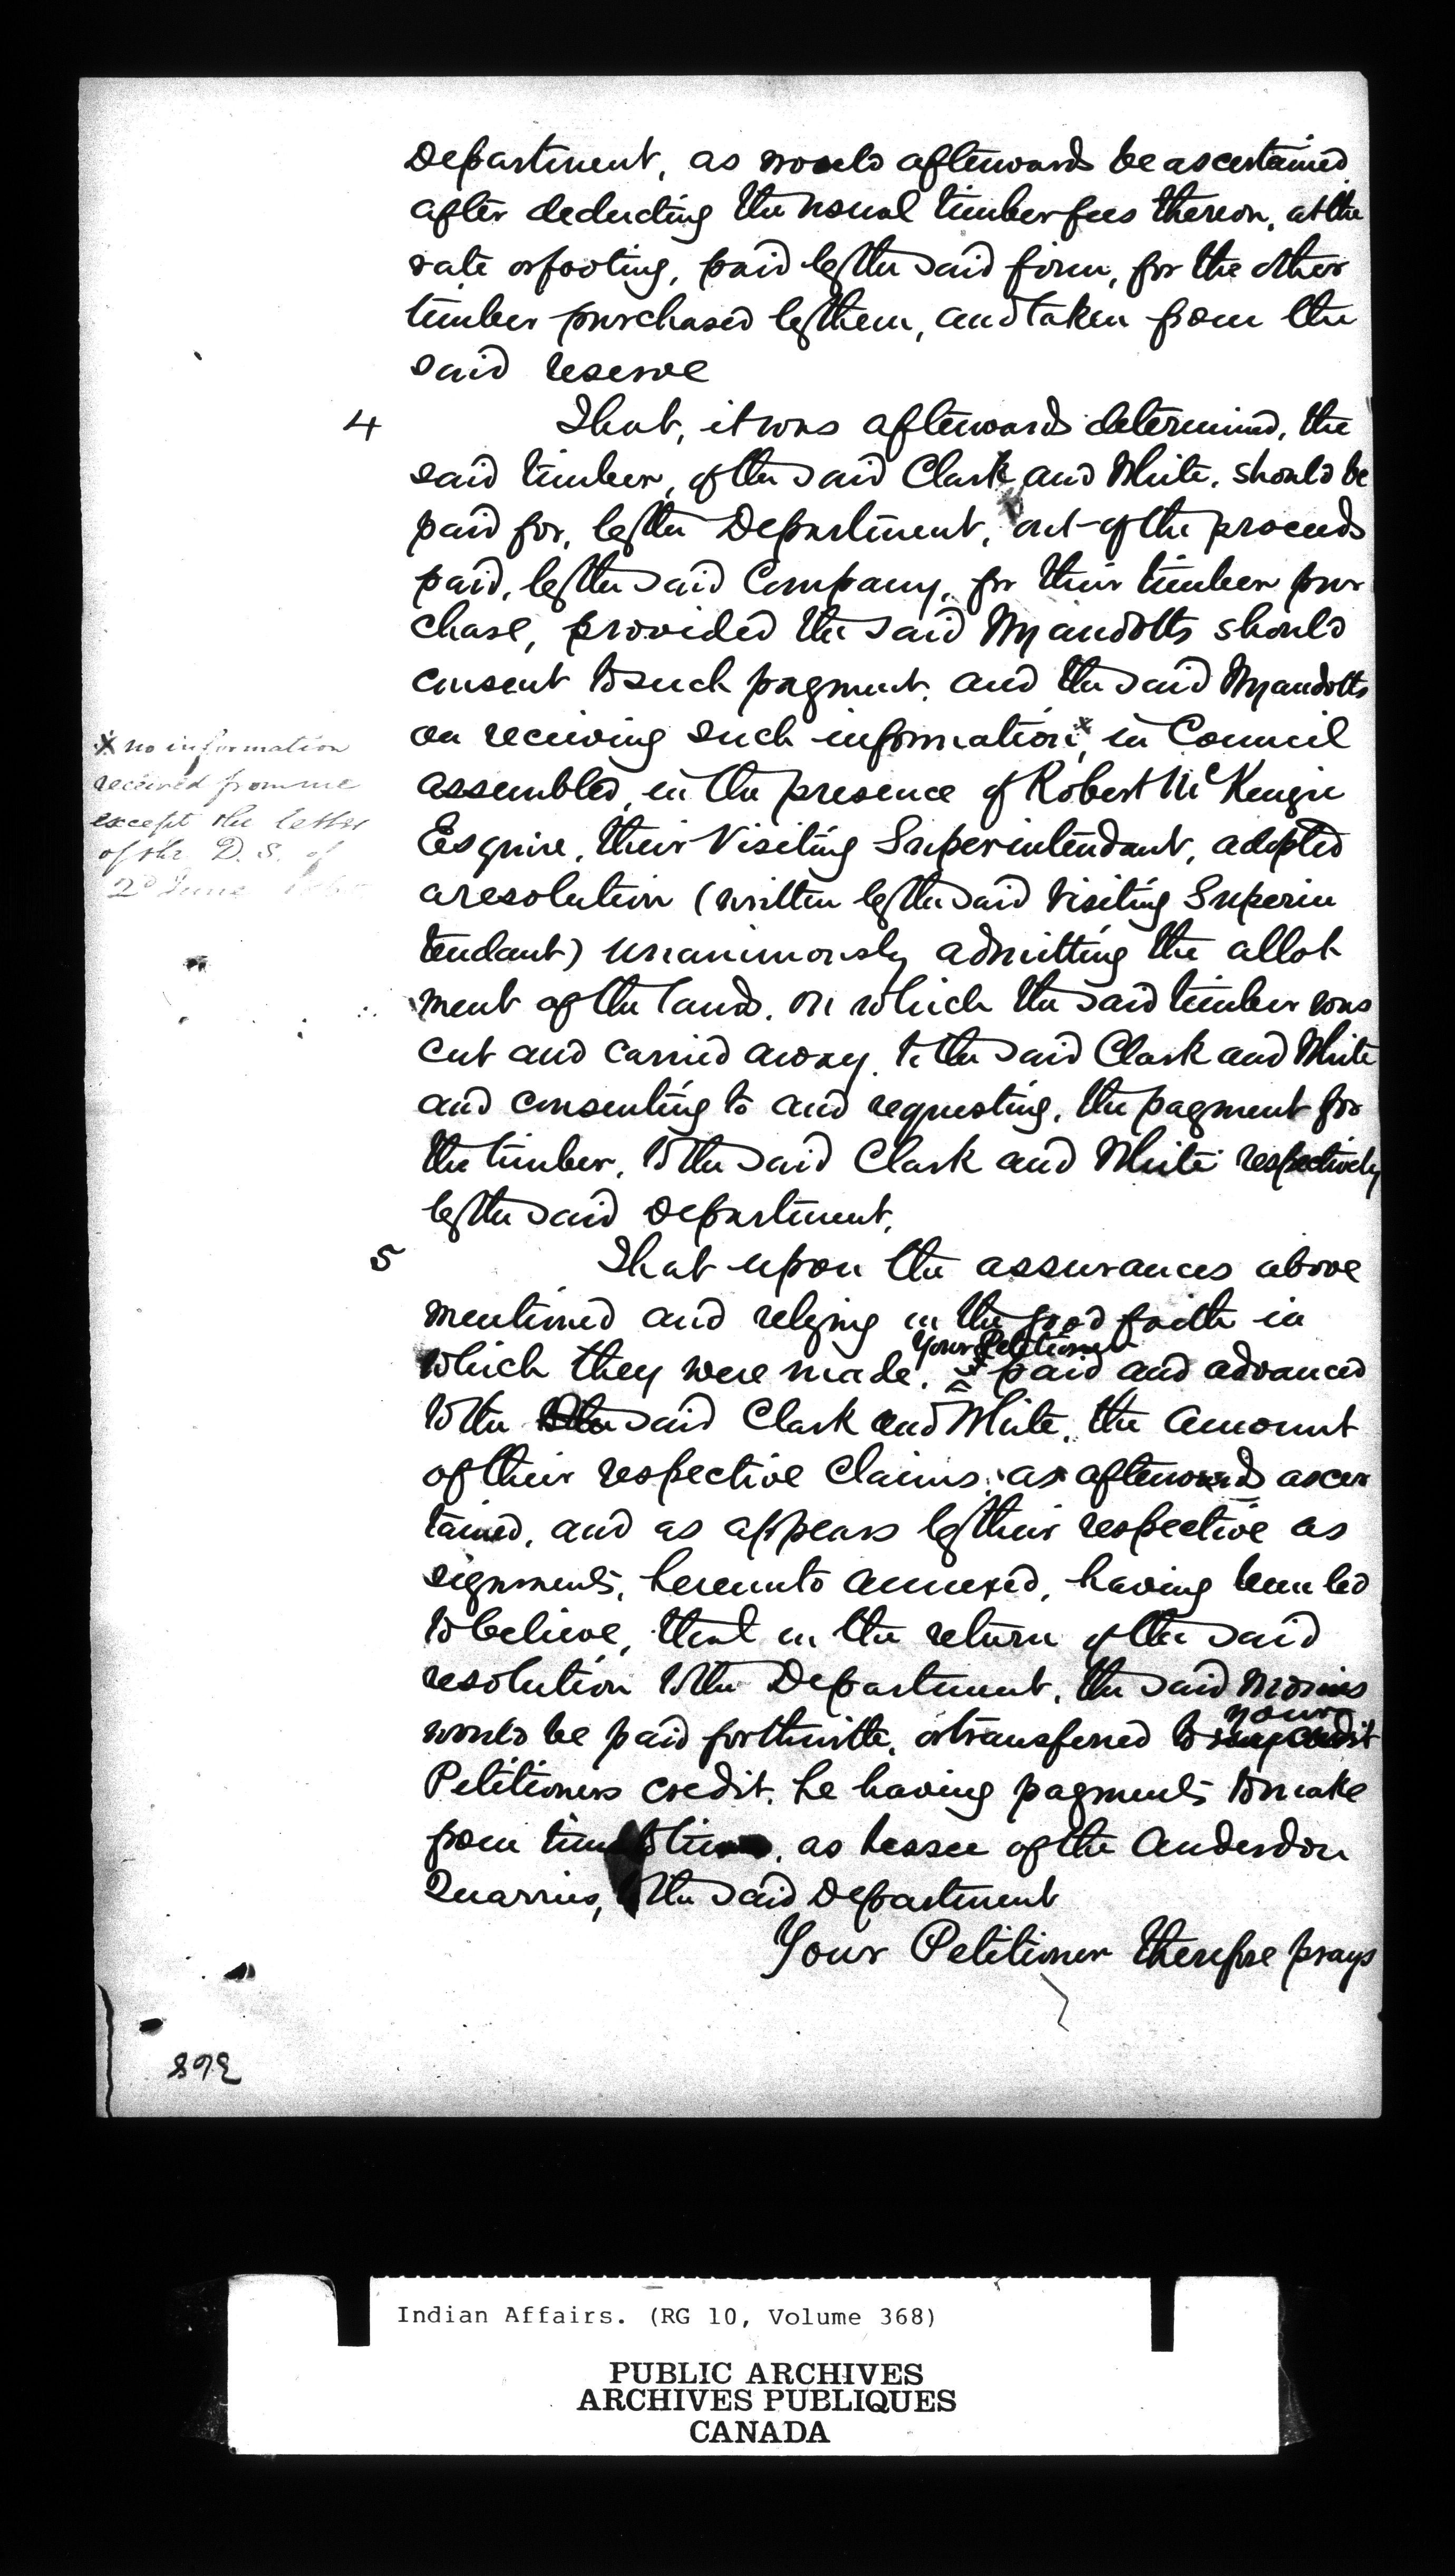 Department, as would afterwards be ascertained
after deducting the usual timber fees thereon, at the
rate or footing, paid by the said firm, for the other
timber purchased by them, and taken from the
said reserve
4 That, it was afterwards determined, the
said timber, of the said Clark and White, should be
paid for, by the Department, out of the proceeds
paid, by the said Company, for their timber pur
chase, provided the said Wyandotts should
consent to such payment. and the said Wyandotts
on receiving such information,* in Council
assembled, in the presence of Robert McKenzie
Esquire, their Visiting Superintendant, adopted
a resolution (written by the said Visiting Superin
tendant) unanimously admitting the allot
ment of the lands, on which the said timber was
cut and carried away, to the said Clark and White
and consenting to and requesting, the payment for
the timber, to the said Clark and White respectively
by the said Department.
x no information
received from me
except the letter
of the D. S. of
2d June
5 That upon the assurances above
mentioned and relying in the good faith in
Your Petitioner
which they were made, paid and advanced
to the said Clark and White, the amount
of their respective claims, as afterwards ascer
tained, and as appears by their respective as
signments, hereunto annexed, having been led
to believe, that in the return of the said
resolution to the Department, the said monies
your
would be paid forthwith, or transferred to my credit
Petitioners credit, he having payments to make
from time to time, as lessee of the Anderdon
Quarries, to the said Department
Your Petitioner therefore prays
892
Indian Affairs. (RG 10, Volume 368)
PUBLIC ARCHIVES
ARCHIVES PUBLIQUES
CANADA